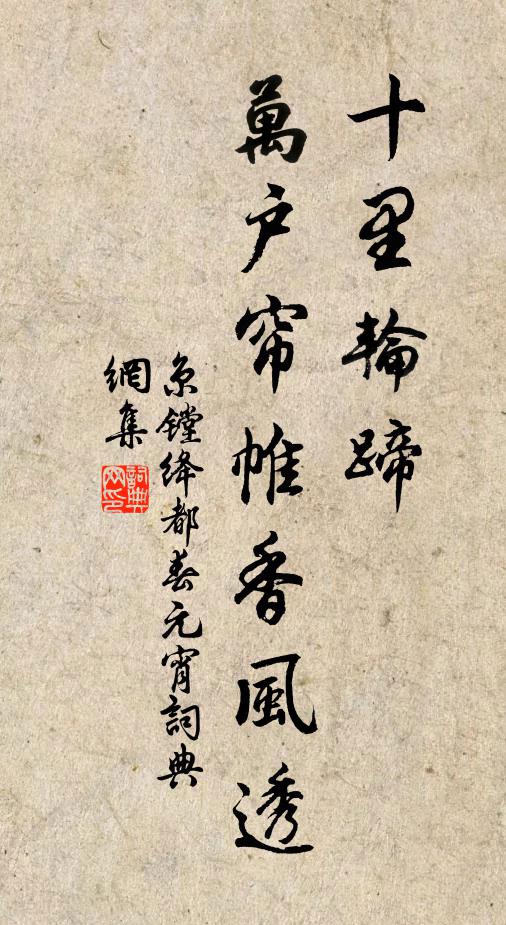 十里輪蹄
萬户帘帷香風透
京鏜绛都春元宵詞典
網集
詞典
网印